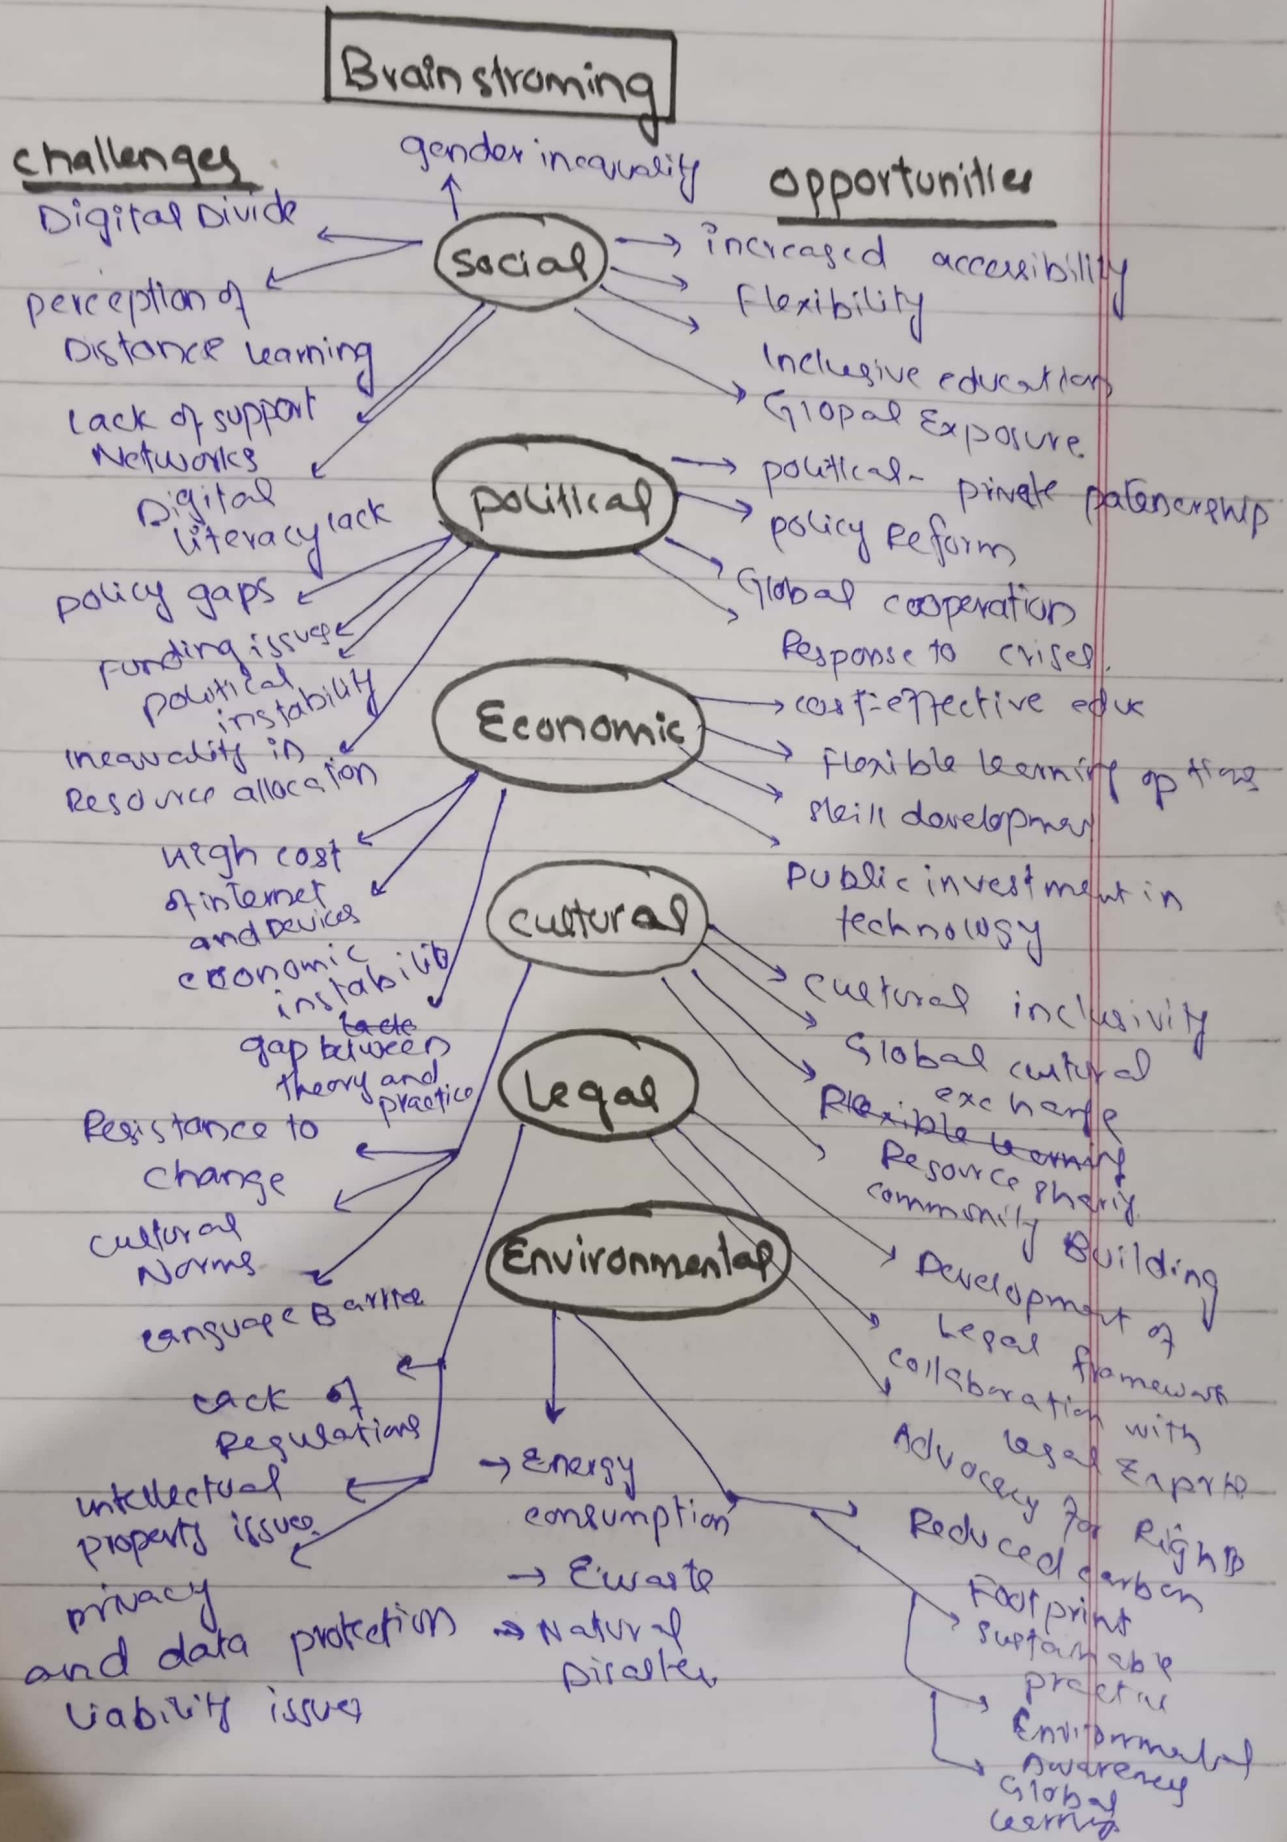 Brainstroming
challenges
gender inequality
opportunities
Digital Divide
social
increased accessibility
perception of
Distance learning
Flexibility
Inclusive education
Glopal Exposure
Lack of support
Networks
Digital
literacy lack
political
political - private patenership
policy Reform
Global cooperation
Response to crises.
policy gaps
Funding issues
political
instability
inequality in
Resource allocation
Economic
cost-effective educ
Flexible learning options
skill developmen
public investment in
technology
High cost
of internet
and Devices
economic
instability
gap between
theory and
practice
cultural
cultural inclusivity
Global cultural
exchange
Flexible learning
Resource sharing
community Building
Resistance to
change
cultural
Norms
Language Barrier
Legal
Development of
Legal framework
collaboration with
legal Experts
Advocacy for Rights
Lack of
Regulations
intellectual
property issues
privacy
and data protection
liability issues
Environmental
→ Energy
consumption
→ Ewaste
→ Natural
Disaster
Reduced carbon
Footprint
Sustainable
practice
Environmental
Awareness
Global
learning